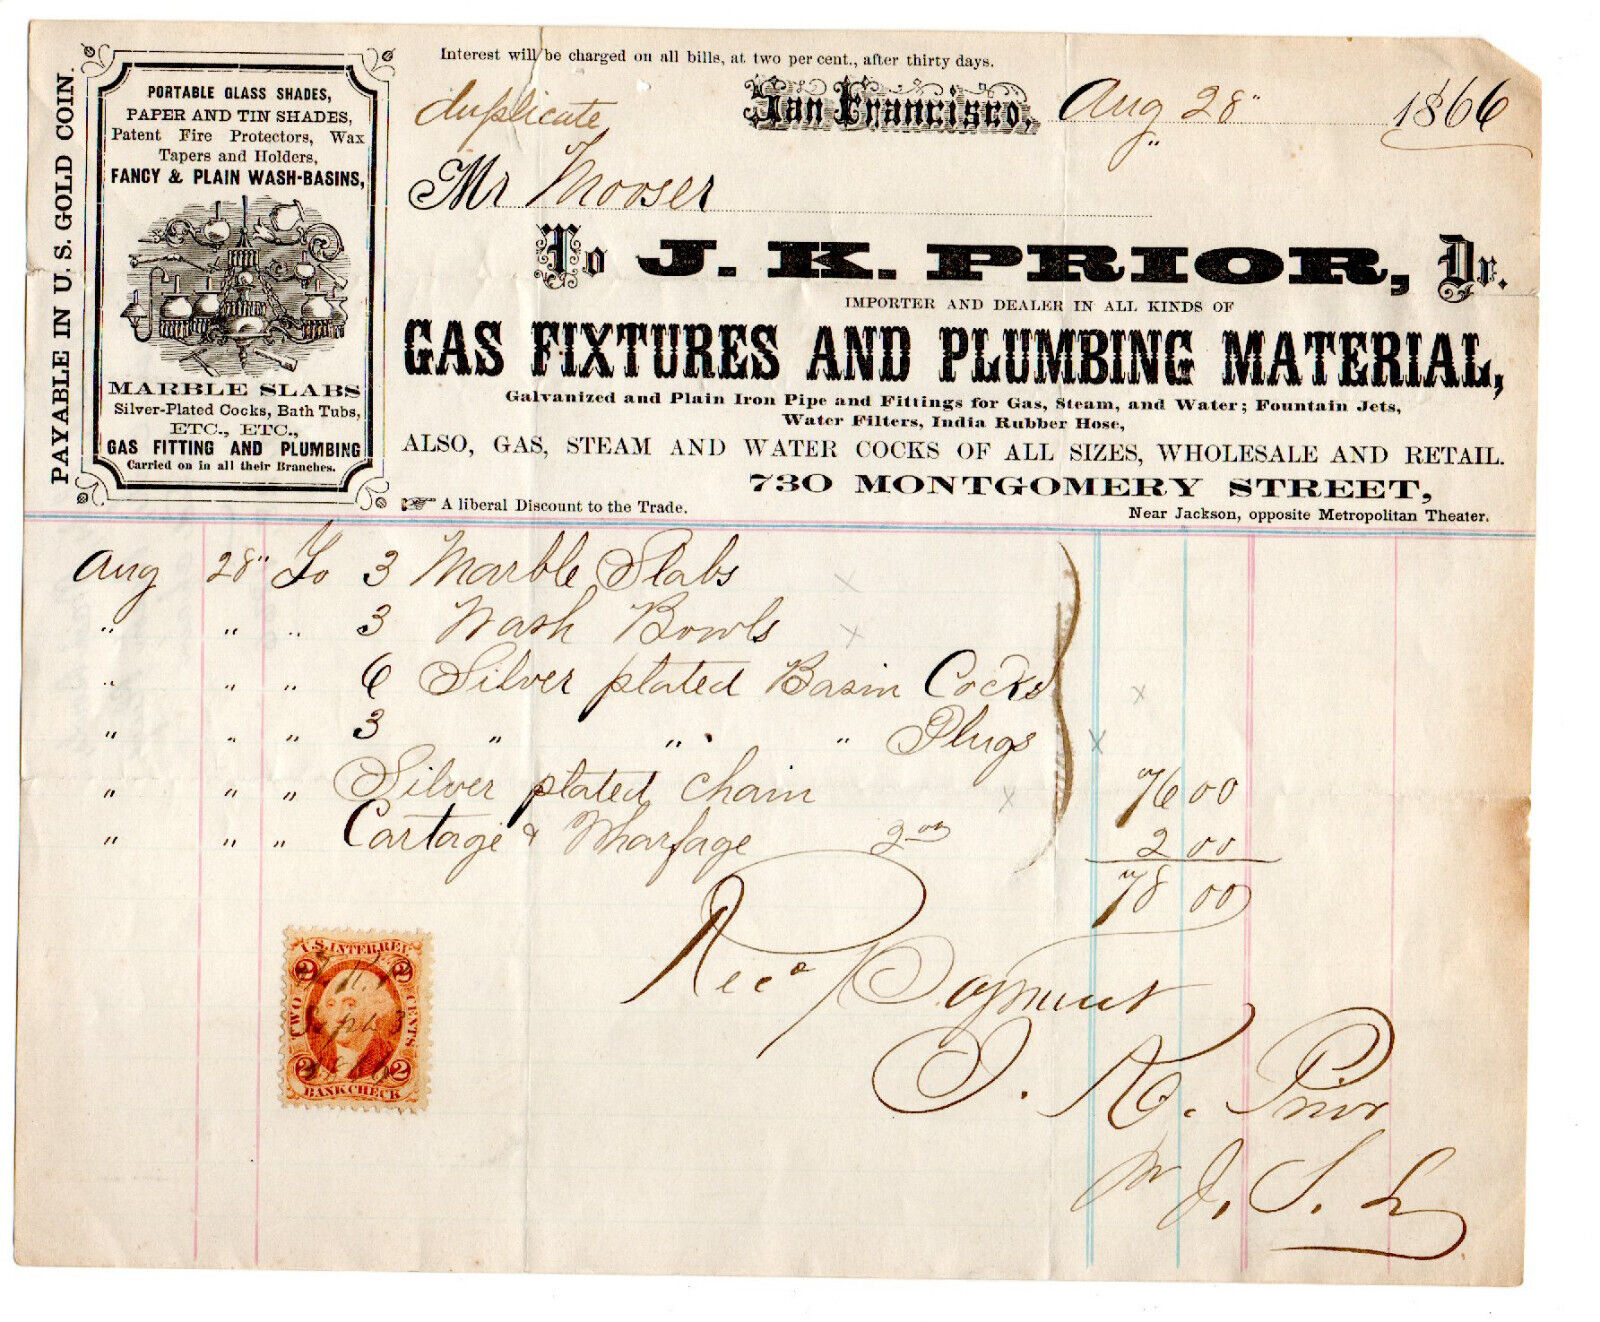 Interest will be charged on all bills, at two per cent., after thirty days.
duplicate
San Francisco, Aug 28" 1866
Mr Mooser
To J. K. PRIOR, Dr.
IMPORTER AND DEALER IN ALL KINDS OF
GAS FIXTURES AND PLUMBING MATERIAL,
Galvanized and Plain Iron Pipe and Fittings for Gas, Steam, and Water; Fountain Jets,
Water Filters, India Rubber Hose,
ALSO, GAS, STEAM AND WATER COCKS OF ALL SIZES, WHOLESALE AND RETAIL.
730 MONTGOMERY STREET,
A liberal Discount to the Trade.
Near Jackson, opposite Metropolitan Theater.
PAYABLE IN U. S. GOLD COIN.
PORTABLE GLASS SHADES,
PAPER AND TIN SHADES,
Patent Fire Protectors, Wax
Tapers and Holders,
FANCY & PLAIN WASH-BASINS,
MARBLE SLABS
Silver-Plated Cocks, Bath Tubs,
ETC., ETC.,
GAS FITTING AND PLUMBING
Carried on in all their Branches.
Aug 28" To 3 Marble Slabs x
" " " 3 Wash Bowls x
" " " 6 Silver plated Basin Cocks x
" " " 3 " " " Plugs x
" " " Silver plated chain x 76 00
" " " Cartage & Wharfage 2 00 2 00
78 00
Recd Payment
J. K. Prior
U.S. INTER. REV.
2 2
TWO CENTS
Sept 3
1866
2 2
BANK CHECK